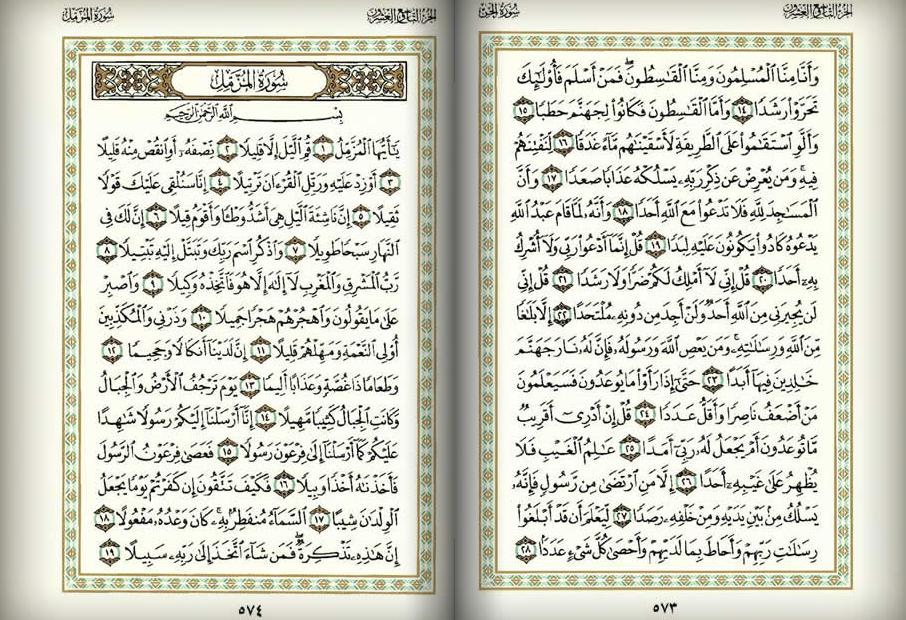 سورة الجن
الجزء التاسع والعشرون
وَأَنَّا مِنَّا الْمُسْلِمُونَ وَمِنَّا الْقَاسِطُونَ ۖ فَمَنْ أَسْلَمَ فَأُولَٰئِكَ
تَحَرَّوْا رَشَدًا ١٤ وَأَمَّا الْقَاسِطُونَ فَكَانُوا لِجَهَنَّمَ حَطَبًا ١٥
وَأَلَّوِ اسْتَقَامُوا عَلَى الطَّرِيقَةِ لَأَسْقَيْنَاهُم مَّاءً غَدَقًا ١٦ لِّنَفْتِنَهُمْ
فِيهِ ۚ وَمَن يُعْرِضْ عَن ذِكْرِ رَبِّهِ يَسْلُكْهُ عَذَابًا صَعَدًا ١٧ وَأَنَّ
الْمَسَاجِدَ لِلَّهِ فَلَا تَدْعُوا مَعَ اللَّهِ أَحَدًا ١٨ وَأَنَّهُ لَمَّا قَامَ عَبْدُ اللَّهِ
يَدْعُوهُ كَادُوا يَكُونُونَ عَلَيْهِ لِبَدًا ١٩ قُلْ إِنَّمَا أَدْعُو رَبِّي وَلَا أُشْرِكُ
بِهِ أَحَدًا ٢٠ قُلْ إِنِّي لَا أَمْلِكُ لَكُمْ ضَرًّا وَلَا رَشَدًا ٢١ قُلْ إِنِّي
لَن يُجِيرَنِي مِنَ اللَّهِ أَحَدٌ وَلَنْ أَجِدَ مِن دُونِهِ مُلْتَحَدًا ٢٢ إِلَّا بَلَاغًا
مِّنَ اللَّهِ وَرِسَالَاتِهِ ۚ وَمَن يَعْصِ اللَّهَ وَرَسُولَهُ فَإِنَّ لَهُ نَارَ جَهَنَّمَ
خَالِدِينَ فِيهَا أَبَدًا ٢٣ حَتَّىٰ إِذَا رَأَوْا مَا يُوعَدُونَ فَسَيَعْلَمُونَ
مَنْ أَضْعَفُ نَاصِرًا وَأَقَلُّ عَدَدًا ٢٤ قُلْ إِنْ أَدْرِي أَقَرِيبٌ
مَّا تُوعَدُونَ أَمْ يَجْعَلُ لَهُ رَبِّي أَمَدًا ٢٥ عَالِمُ الْغَيْبِ فَلَا
يُظْهِرُ عَلَىٰ غَيْبِهِ أَحَدًا ٢٦ إِلَّا مَنِ ارْتَضَىٰ مِن رَّسُولٍ فَإِنَّهُ
يَسْلُكُ مِن بَيْنِ يَدَيْهِ وَمِنْ خَلْفِهِ رَصَدًا ٢٧ لِّيَعْلَمَ أَن قَدْ أَبْلَغُوا
رِسَالَاتِ رَبِّهِمْ وَأَحَاطَ بِمَا لَدَيْهِمْ وَأَحْصَىٰ كُلَّ شَيْءٍ عَدَدًا ٢٨
٥٧٣
الجزء التاسع والعشرون
سورة المزمل
سُورَةُ الْمُزَّمِّلِ
بِسْمِ اللَّهِ الرَّحْمَٰنِ الرَّحِيمِ
يَا أَيُّهَا الْمُزَّمِّلُ ١ قُمِ اللَّيْلَ إِلَّا قَلِيلًا ٢ نِّصْفَهُ أَوِ انقُصْ مِنْهُ قَلِيلًا
٣ أَوْ زِدْ عَلَيْهِ وَرَتِّلِ الْقُرْآنَ تَرْتِيلًا ٤ إِنَّا سَنُلْقِي عَلَيْكَ قَوْلًا
ثَقِيلًا ٥ إِنَّ نَاشِئَةَ اللَّيْلِ هِيَ أَشَدُّ وَطْئًا وَأَقْوَمُ قِيلًا ٦ إِنَّ لَكَ فِي
النَّهَارِ سَبْحًا طَوِيلًا ٧ وَاذْكُرِ اسْمَ رَبِّكَ وَتَبَتَّلْ إِلَيْهِ تَبْتِيلًا ٨
رَّبُّ الْمَشْرِقِ وَالْمَغْرِبِ لَا إِلَٰهَ إِلَّا هُوَ فَاتَّخِذْهُ وَكِيلًا ٩ وَاصْبِرْ
عَلَىٰ مَا يَقُولُونَ وَاهْجُرْهُمْ هَجْرًا جَمِيلًا ١٠ وَذَرْنِي وَالْمُكَذِّبِينَ
أُولِي النَّعْمَةِ وَمَهِّلْهُمْ قَلِيلًا ١١ إِنَّ لَدَيْنَا أَنكَالًا وَجَحِيمًا ١٢
وَطَعَامًا ذَا غُصَّةٍ وَعَذَابًا أَلِيمًا ١٣ يَوْمَ تَرْجُفُ الْأَرْضُ وَالْجِبَالُ
وَكَانَتِ الْجِبَالُ كَثِيبًا مَّهِيلًا ١٤ إِنَّا أَرْسَلْنَا إِلَيْكُمْ رَسُولًا شَاهِدًا
عَلَيْكُمْ كَمَا أَرْسَلْنَا إِلَىٰ فِرْعَوْنَ رَسُولًا ١٥ فَعَصَىٰ فِرْعَوْنُ الرَّسُولَ
فَأَخَذْنَاهُ أَخْذًا وَبِيلًا ١٦ فَكَيْفَ تَتَّقُونَ إِن كَفَرْتُمْ يَوْمًا يَجْعَلُ
الْوِلْدَانَ شِيبًا ١٧ السَّمَاءُ مُنفَطِرٌ بِهِ ۚ كَانَ وَعْدُهُ مَفْعُولًا ١٨
إِنَّ هَٰذِهِ تَذْكِرَةٌ ۖ فَمَن شَاءَ اتَّخَذَ إِلَىٰ رَبِّهِ سَبِيلًا ١٩
٥٧٤